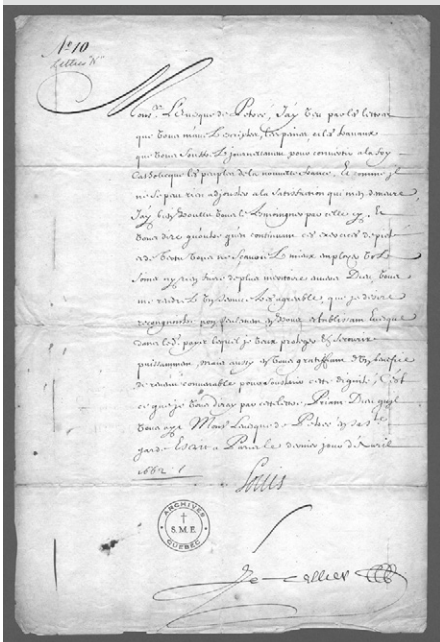 N.º 10
Lettres
Mons.r L'Evesque de Petrée, J'ay veu par les lettres
que vous m'avez escriptes, les peines et les travaux
que vous pour convertir a la foy
Catholique les peuples de la nouvelle France. Et comme il
ne se peut rien adjouster a la satisfaction qui m'en demeure,
J'ay bien voulu vous le tesmoigner par celle cy. Et
vous dire qu'outre qu'en continuant ces exercices de pieté
et de vertu vous ne scauriez mieux employer vos
soins ny rien faire de plus meritoire envers Dieu, vous
me rendrez un service tres agreable, que je desire
recognoistre non seulement en vous establissant Evesque
dans led. pays lequel je veux proteger et secourir
puissamment, mais aussy en vous gratiffiant d'un
de revenu convenable pour soustenir cette dignité, C'est
ce que je vous diray par cette lettre. Priant Dieu qu'il
vous ayt Mons.r L'Evesque de Petrée en sa s.te
garde Escrit a Paris le dernier jour d'Avril
1662 /.
Louis
ARCHIVES
S.M.E.
QUEBEC
Le Tellier